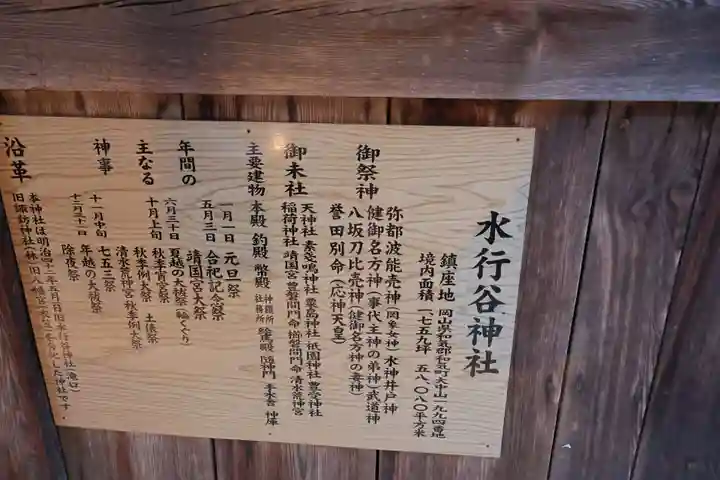 水行谷神社
鎮座地 岡山県和気郡和気町大中山一九九四番地
境内面積 一、七五九坪 五八〇八〇平方米
御祭神
弥都波能売神(罔象女神)水神井戸神
健御名方神(事代主神の弟神)武道神
八坂刀比売神(健御名方神の妻神)
誉田別命(応神天皇)
御末社
天神社 素戔嗚神社 粟島神社 祇園神社 豊受神社
稲荷神社 靖国宮 豊磐間門命 櫛磐間門命 清水荒神宮
主要建物 本殿 釣殿 幣殿 神饌所 社務所 絵馬殿 随神門 手水舎 神庫
年間の
主なる
神事
一月一日 元旦祭
五月三日 合祀記念祭
靖国宮大祭
六月三十日 夏越の大祓祭(輪くぐり)
十月上旬 秋季宵宮祭
秋季例大祭 土俵祭
清水荒神宮秋季例大祭
十一月中旬 七五三祭
十二月三十一日 年越の大祓祭
除夜祭
沿革
本神社は明治四十二年五月旧水行谷神社(滝口)
旧諏訪神社(林)旧八幡宮
した神社です。